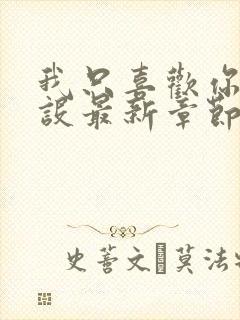 我只喜歡你
設最新章節
史蕾文 莫法